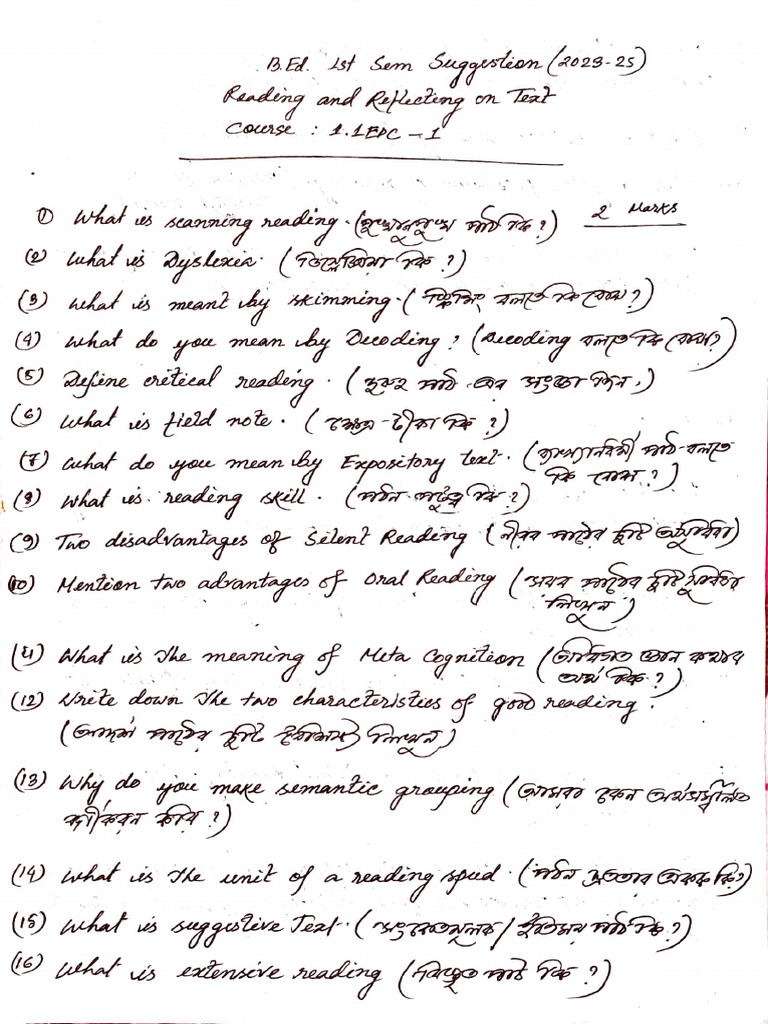 B.Ed. 1st Sem Suggestion (2023-25)
Reading and Reflecting on Text
Course : 1.1EPC - 1
2 Marks
(1) What is scanning reading. (পুঙ্খানুপুঙ্খ পাঠ কি ?)
(2) What is Dyslexia. (ডিস্লেক্সিয়া কি ?)
(3) What is meant by skimming. (স্কিমিং বলতে কি বোঝ ?)
(4) What do you mean by Decoding ? (Decoding বলতে কি বোঝ ?)
(5) Define critical reading. (দুরূহ পাঠ এর সংজ্ঞা দিন.)
(6) What is field note. (ক্ষেত্র-টীকা কি ?)
(7) What do you mean by Expository text. (ব্যাখ্যানধর্মী পাঠ বলতে
কি বোঝ ?)
(8) What is reading skill. (পঠন কি ?)
(9) Two disadvantages of Silent Reading (নীরব পাঠের দুটি অসুবিধা)
(10) Mention two advantages of Oral Reading (সরব পাঠের দুটি সুবিধা
লিখুন)
(11) What is the meaning of Meta Cognition (জ্ঞান কথার
অর্থ কি ?)
(12) Write down the two characteristics of good reading.
(আদর্শ পাঠের দুটি বৈশিষ্ট্য লিখুন)
(13) Why do you make semantic grouping (আমরা কেন
করি ?)
(14) What is the unit of a reading speed. (পঠন দ্রুততার একক কি?)
(15) What is suggestive Text. (সংকেতমূলক / পাঠ কি ?)
(16) What is extensive reading (বিস্তৃত পাঠ কি ?)